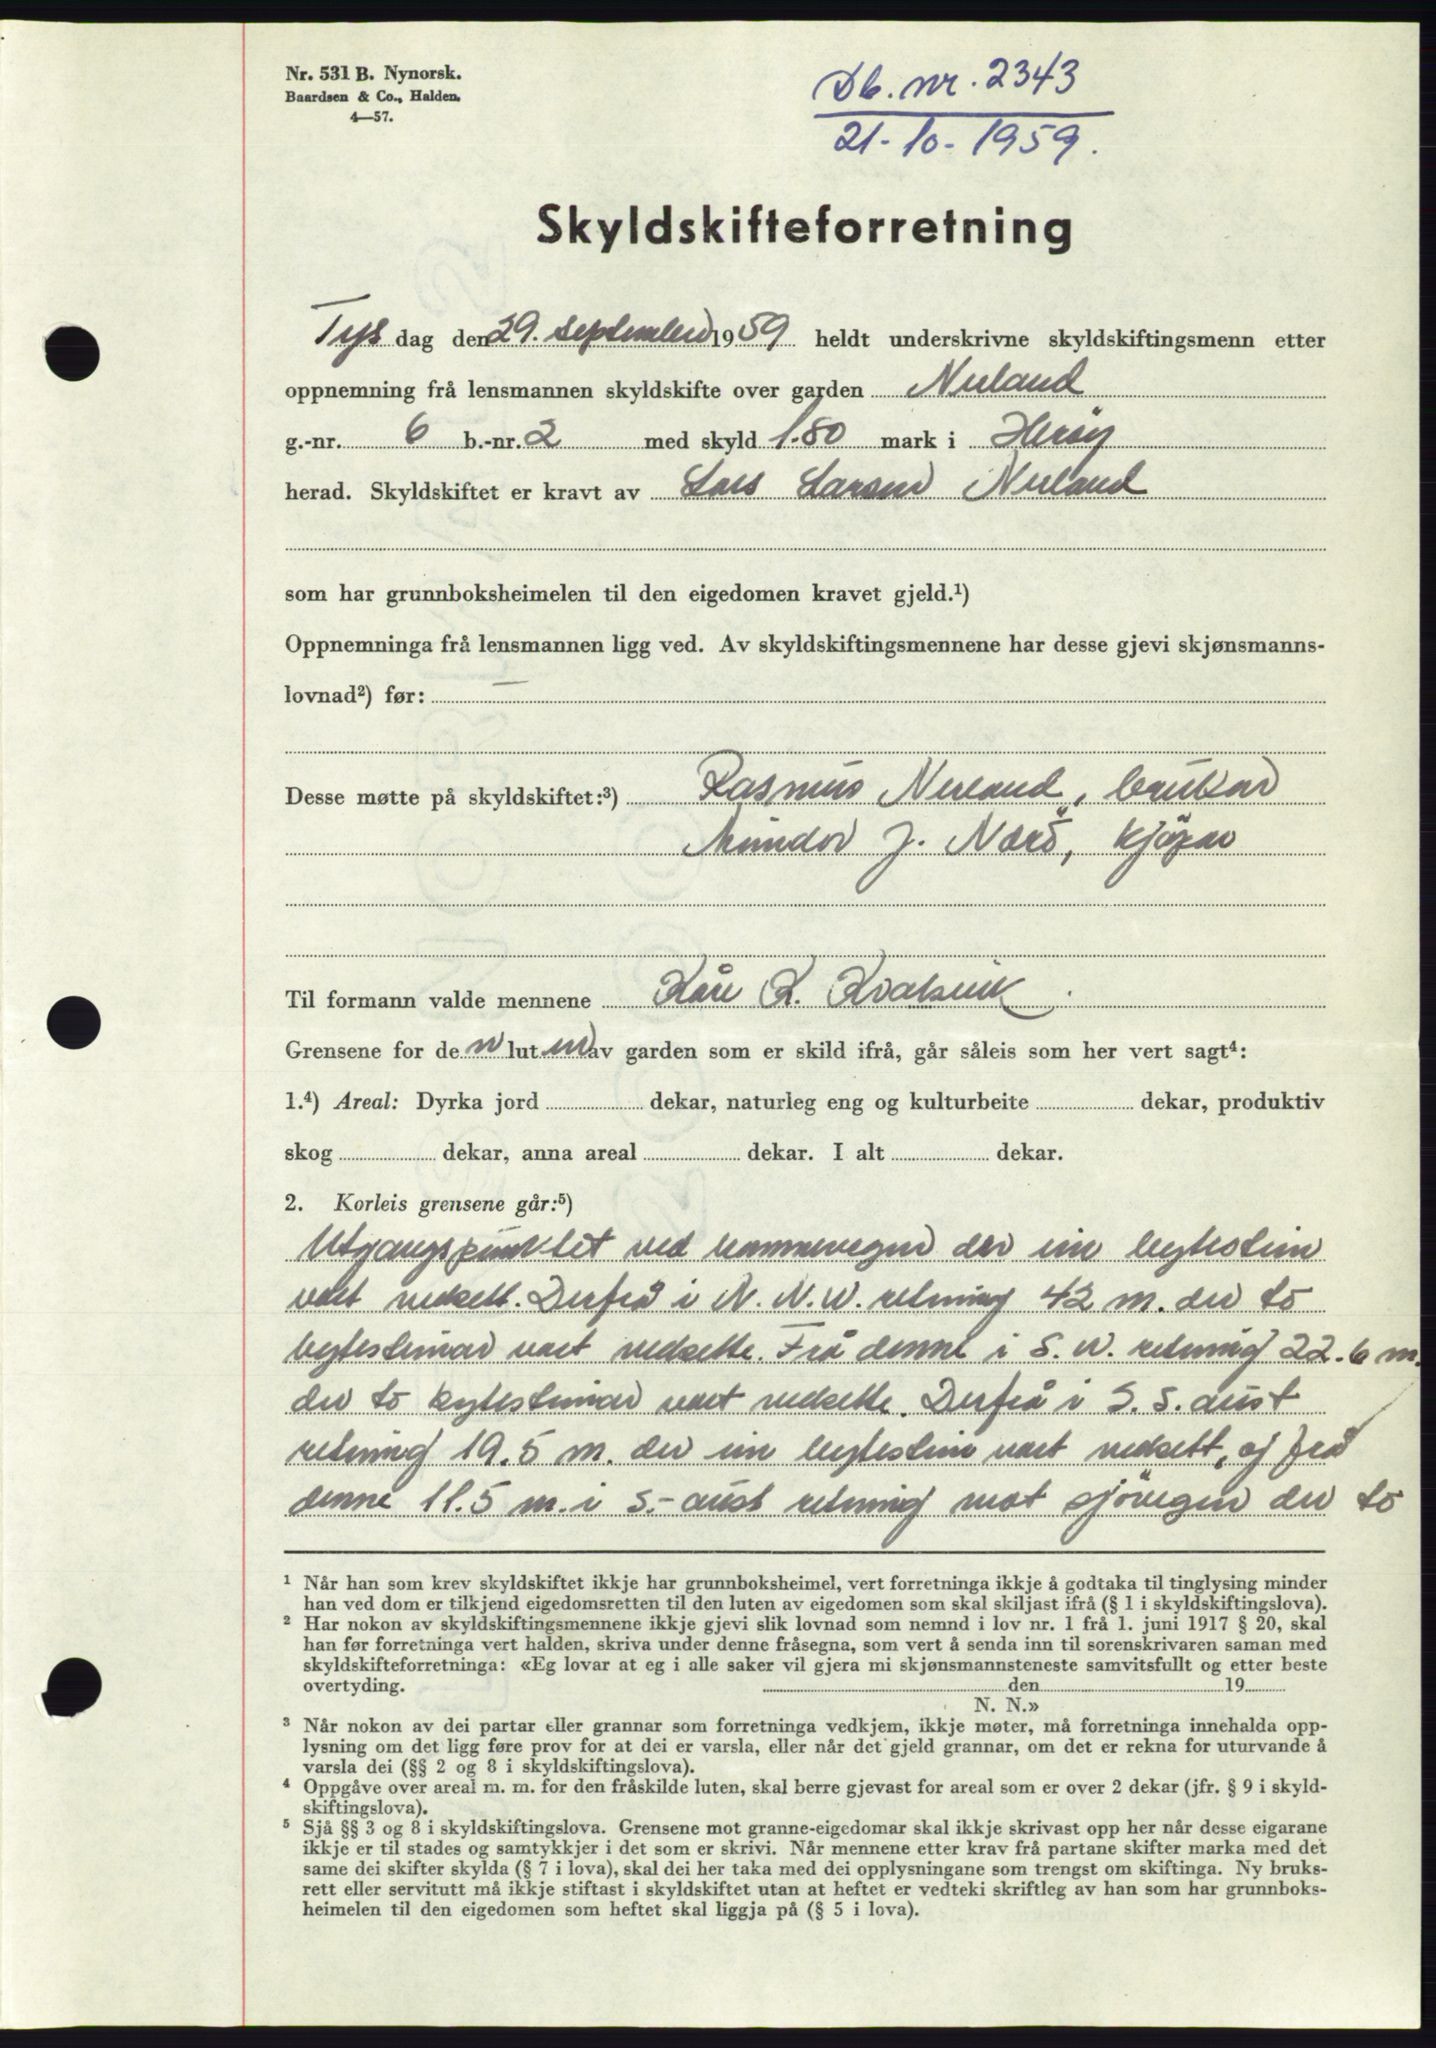 Nr. 531 B. Nynorsk.
Baardsen & Co., Halden.
4—57.
Db. nr. 2343
21-10-1959.
Skyldskifteforretning
Tys dag den 29. september 1959 heldt underskrivne skyldskiftingsmenn etter
oppnemning frå lensmannen skyldskifte over garden Nerland
g.-nr. 6 b.-nr. 2 med skyld 1.80 mark i Herøy
herad. Skyldskiftet er kravt av Lars Larsen Nerland
som har grunnboksheimelen til den eigedomen kravet gjeld.¹)
Oppnemninga frå lensmannen ligg ved. Av skyldskiftingsmennene har desse gjevi skjønsmanns-
lovnad²) før: —
Desse møtte på skyldskiftet:³) Rasmus Nerland, brukar
J. Nærö, kjøpar
Til formann valde mennene Kåre K. Kvalsvik
Grensene for den luten av garden som er skild ifrå, går såleis som her vert sagt⁴:
1.⁴) Areal: Dyrka jord dekar, naturleg eng og kulturbeite dekar, produktiv
skog dekar, anna areal dekar. I alt dekar.
2. Korleis grensene går:⁵)
Utgangspunktet ved der ein bytestein
vart nedsett. Derfrå i N. N. W. retning 42 m. der to
bytesteinar vart nedsette. Frå denne i S. W. retning 22.6 m.
der to bytesteinar vart nedsette. Derfrå i S. S. aust
retning 19.5 m. der ein bytestein vart nedsett, og frå
denne 11.5 m. i S.-aust retning mot sjövegen der to
¹ Når han som krev skyldskiftet ikkje har grunnboksheimel, vert forretninga ikkje å godtaka til tinglysing minder
han ved dom er tilkjend eigedomsretten til den luten av eigedomen som skal skiljast ifrå (§ 1 i skyldskiftingslova).
² Har nokon av skyldskiftingsmennene ikkje gjevi slik lovnad som nemnd i lov nr. 1 frå 1. juni 1917 § 20, skal
han før forretninga vert halden, skriva under denne fråsegna, som vert å senda inn til sorenskrivaren saman med
skyldskifteforretninga: «Eg lovar at eg i alle saker vil gjera mi skjønsmannsteneste samvitsfullt og etter beste
overtyding. den 19
N. N.»
³ Når nokon av dei partar eller grannar som forretninga vedkjem, ikkje møter, må forretninga innehalda opp-
lysning om det ligg føre prov for at dei er varsla, eller når det gjeld grannar, om det er rekna for uturvande å
varsla dei (§§ 2 og 8 i skyldskiftingslova).
⁴ Oppgåve over areal m. m. for den fråskilde luten, skal berre gjevast for areal som er over 2 dekar (jfr. § 9 i skyld-
skiftingslova).
⁵ Sjå §§ 3 og 8 i skyldskiftingslova. Grensene mot granne-eigedomar skal ikkje skrivast opp her når desse eigarane
ikkje er til stades og samtykkjer i det som er skrivi. Når mennene etter krav frå partane skifter marka med det
same dei skifter skylda (§ 7 i lova), skal dei her taka med dei opplysningane som trengst om skiftinga. Ny bruks-
rett eller servitutt må ikkje stiftast i skyldskiftet utan at heftet er vedteki skriftleg av han som har grunnboks-
heimelen til den eigedomen som heftet skal liggja på (§ 5 i lova).